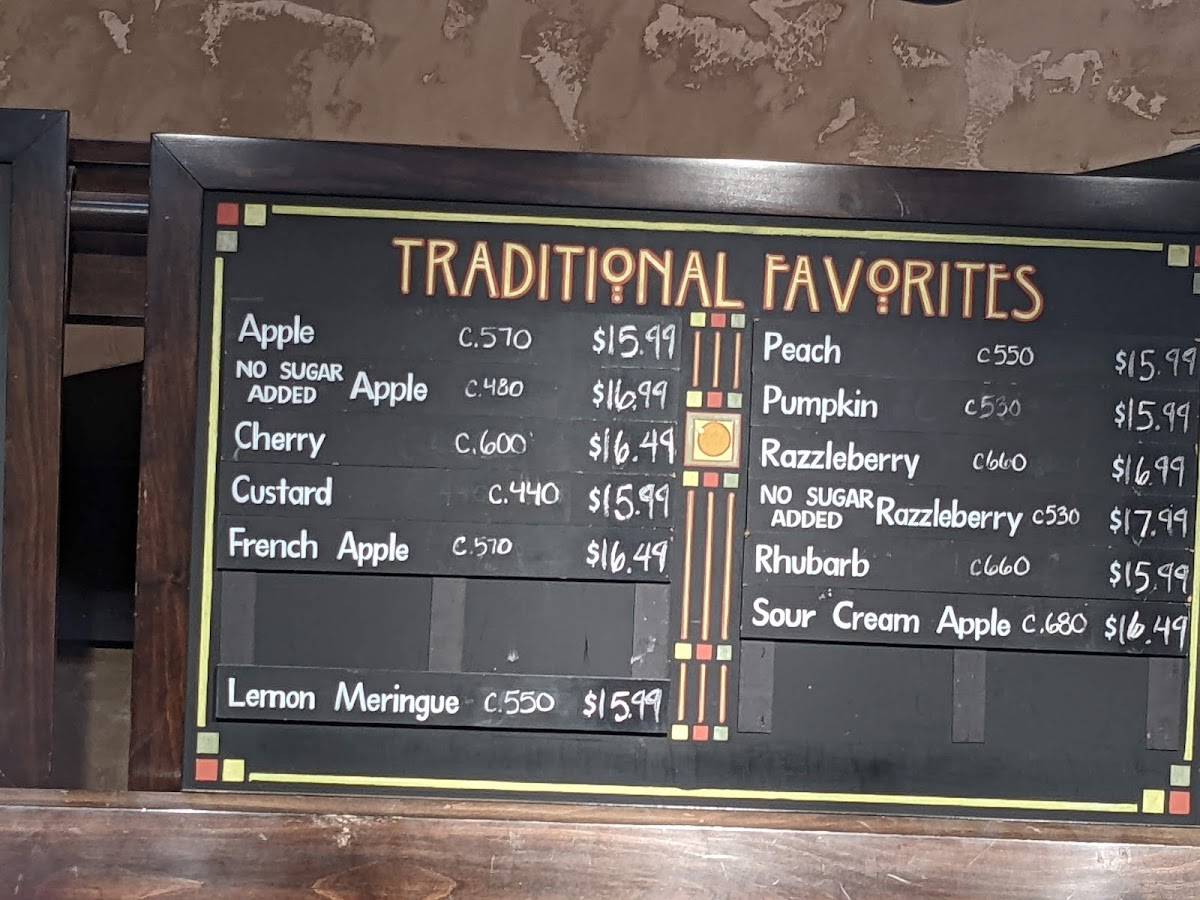 TRADITIONAL FAVORITES
Apple C.570 $15.99
NO SUGAR ADDED Apple C.480 $16.99
Cherry C.600 $16.49
Custard C.440 $15.99
French Apple C.570 $16.49
Lemon Meringue C.550 $15.99
Peach C550 $15.99
Pumpkin C530 $15.99
Razzleberry C660 $16.99
NO SUGAR ADDED Razzleberry C530 $17.99
Rhubarb C660 $15.99
Sour Cream Apple C.680 $16.49